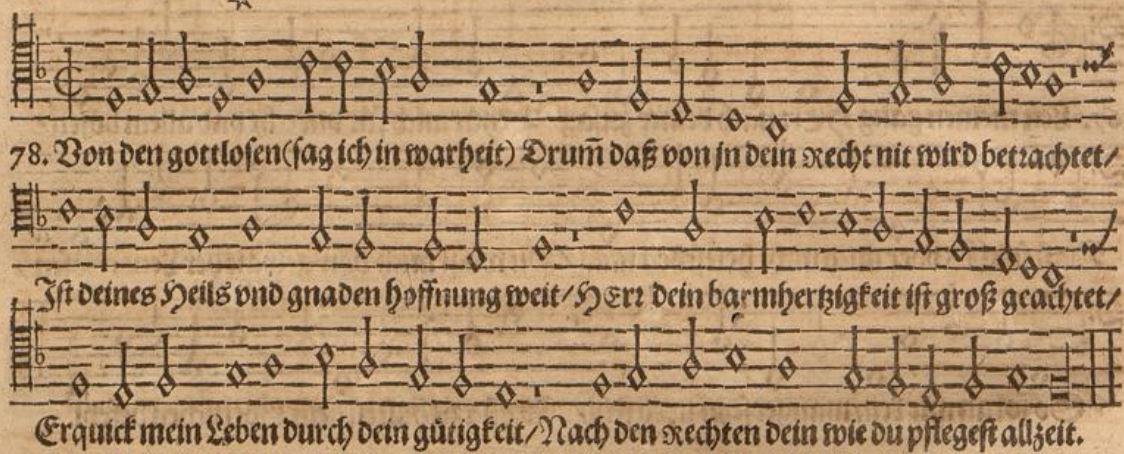 78. Von den gottlosen (sag ich in warheit) Drum̃ daß von jn dein Recht nit wird betrachtet/
Ist deines Heils vnd gnaden hoffnung weit/ HErr dein barmhertzigkeit ist groß geachtet/
Erquick mein Leben durch dein gütigkeit/ Nach den Rechten dein wie du pflegest allzeit.